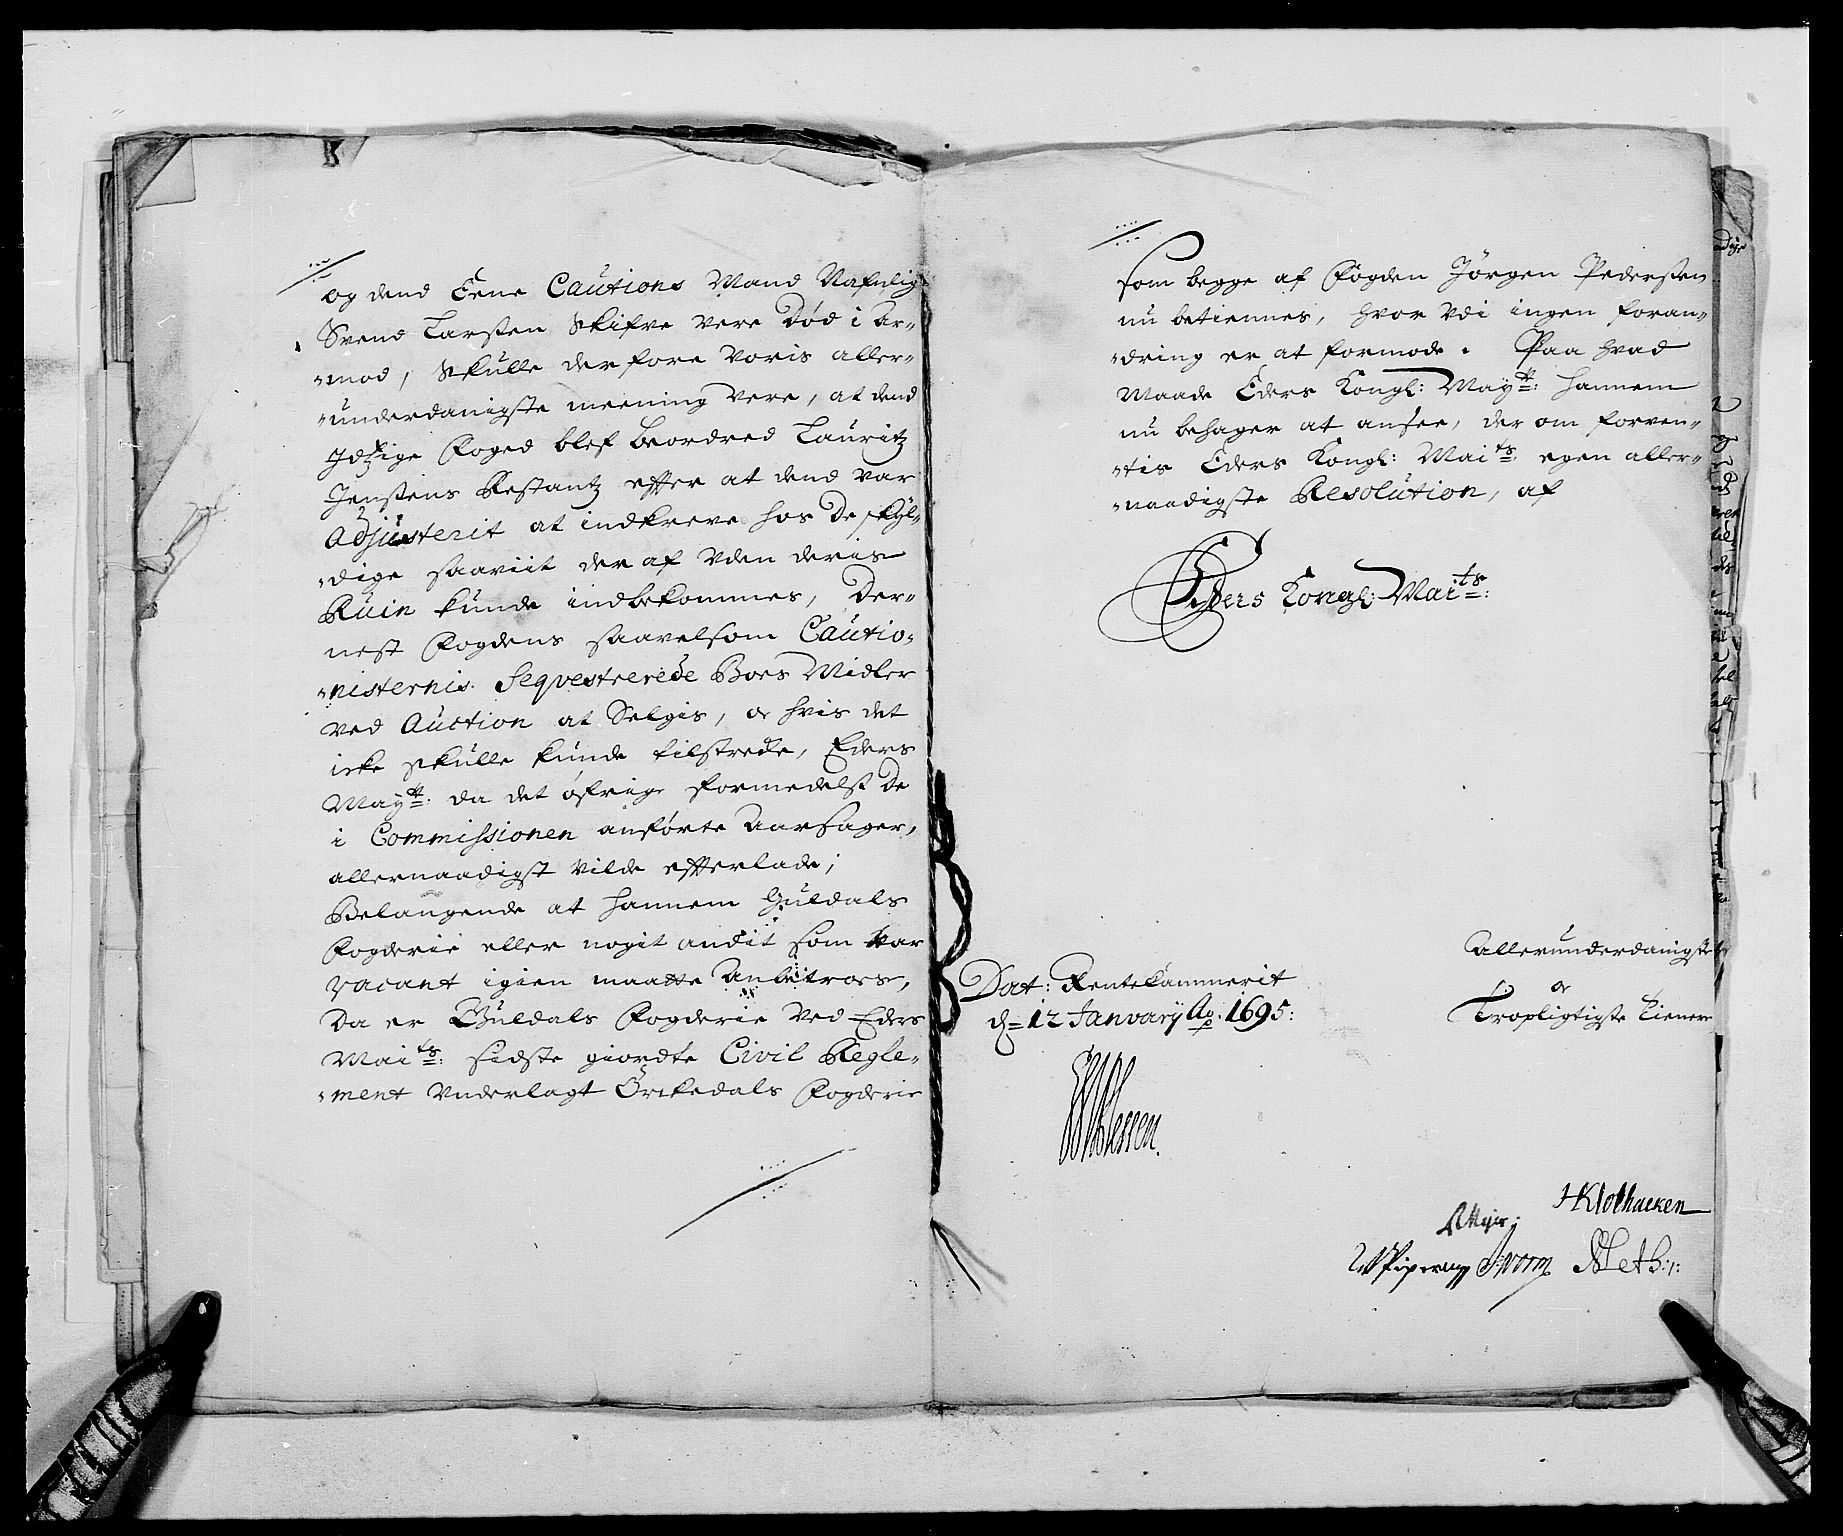 og dend Eene Cautions Mand Nafnlig
Svend Larssen skifve vere Død i Ar-
-mod, skulle derfore voris aller-
-underdanigste meening vere, at dend
Jdtzige Foged blef beordred Lauritz
Jenssens Restantz effter at dend var
Adjusterit at indkreve hos De skyl-
-dige saaviit der af uden deris
Ruin kunde indbekommes, Der-
nest Fogdens saavelsom Cautio-
-nisternis Seqvestrerede Boes Midler
ved Auction at Selgis, oc hvis det
icke skulle kunde tilstrede, Eders
Mayt: da det øfrige formedelst De
i Commissionen anførte Aarsager,
allernaadigst vilde effterlade;
Belangende at hannem Guldals
Fogderie eller nogit andit som var
vacant igien maatte Anbetroes,
Da er Guldals Fogderie ved Eders
Maits: sidste giordte Civil Regle-
-ment underlagt Orckedals Fogderie
som begge af Fogden Jørgen Pederssen
nu betiennes, hvor udi ingen foran-
-dring er at formode. Paa hvad
Maade Eders Kongl: Mayt: hannem
nu behager at ansee, der om forven-
-tis Eders Kongl: Maits: egen aller-
-naadigste Resolution, af
Eders Kongl: Maits:
Allerunderdanigste
oc
Tropligtigste Tienere
Dat: Rentekammerit
d= 12 January Ao. 1695:
Plessen.
HKlothacken
RMeijer:
Worm